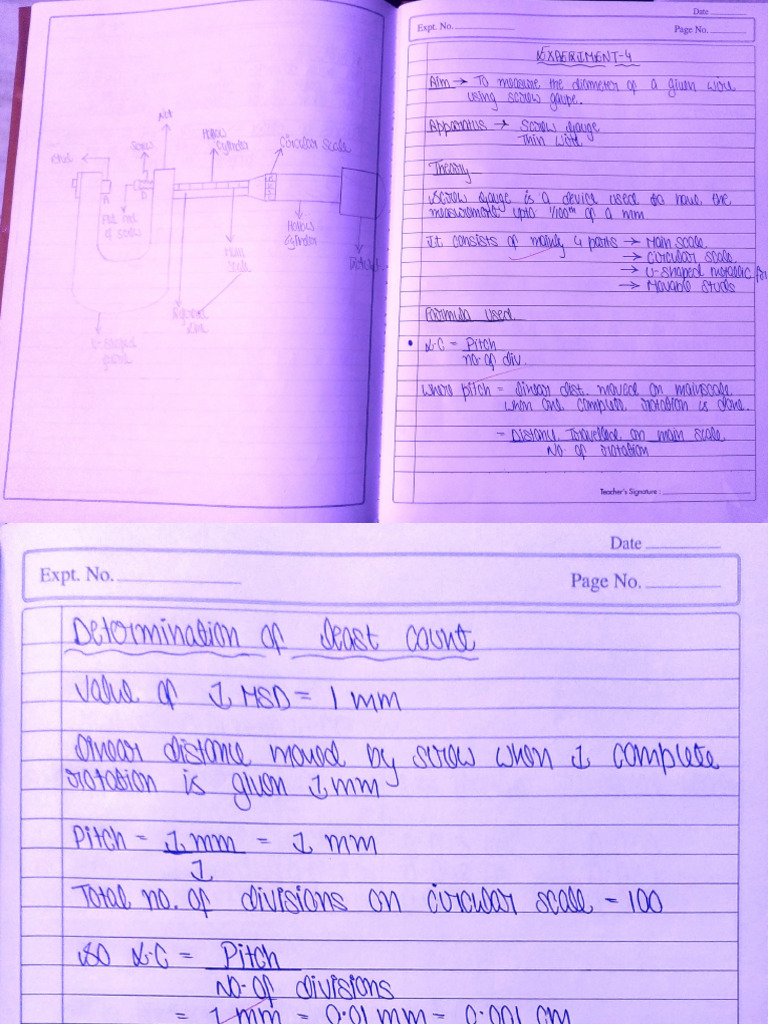 Nut
Screw
Hollow
Cylinder
Circular Scale
Stud
A
B
Flat end
of screw
Main
Scale
Hollow
Cylinder
U-shaped
frame
Date
Expt. No.
Page No.
EXPERIMENT-4
Aim → To measure the diameter of a given wire
using screw gauge.
Apparatus → Screw Gauge
Thin Wire
Theory
Screw Gauge is a device used to have the
measurement upto 1/100th of a mm
It consists of mainly 4 parts → Main scale
→ Circular scale
→ U-shaped metallic
→ Movable studs
Formula Used
• L.C = Pitch
no. of div.
where pitch = linear dist. moved on mainscale
when one complete rotation is done.
= Distance Travelled on main scale
No. of rotation
Teacher's Signature :
Date
Expt. No.
Page No.
Determination of least count
Value of 1 MSD = 1 mm
Linear distance moved by screw when 1 complete
rotation is given 1 mm
Pitch = 1 mm = 1 mm
1
Total no. of divisions on circular scale = 100
So L.C = Pitch
No. of divisions
= 1 mm = 0.01 mm = 0.001 cm